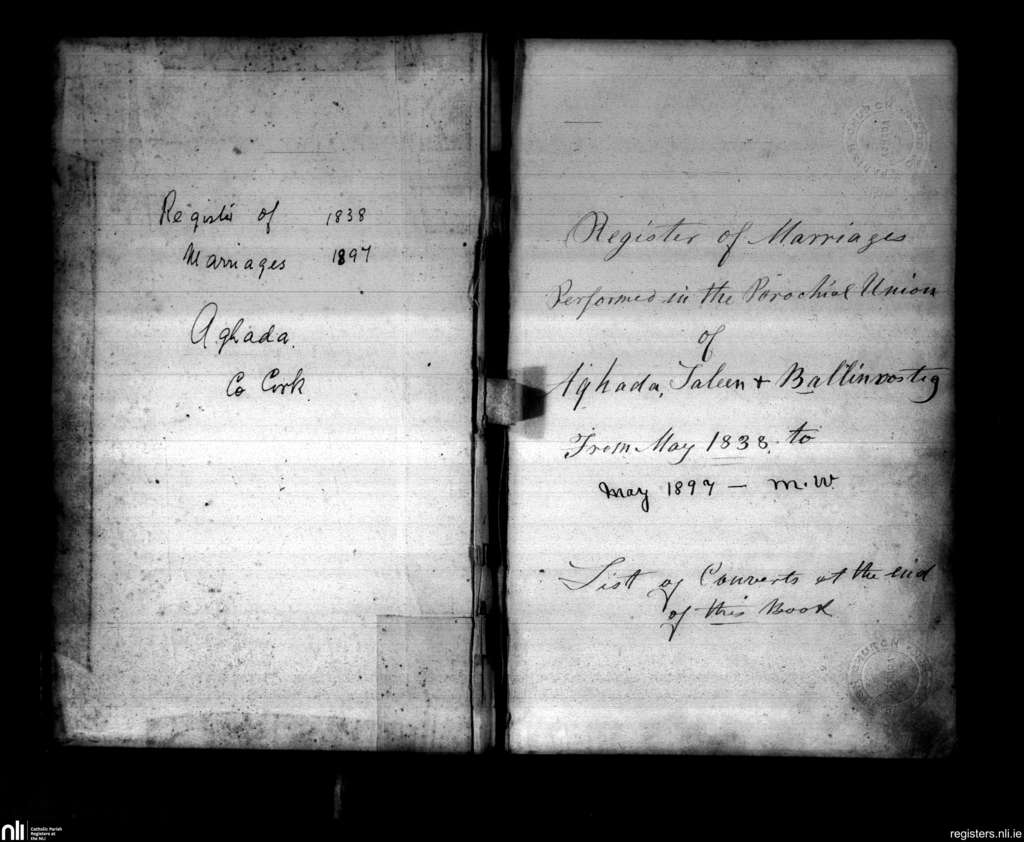 Register of 1838
Marriages 1897
Aghada.
Co Cork
Register of Marriages
Performed in the Parochial Union
of
Aghada, Saleen + Ballinrostig
From May 1838. to
May 1897 – M.W.
List of Converts at the end
of this Book
CHURCH
CHURCH
nli
Catholic Parish
Registers at
the NLI
registers.nli.ie